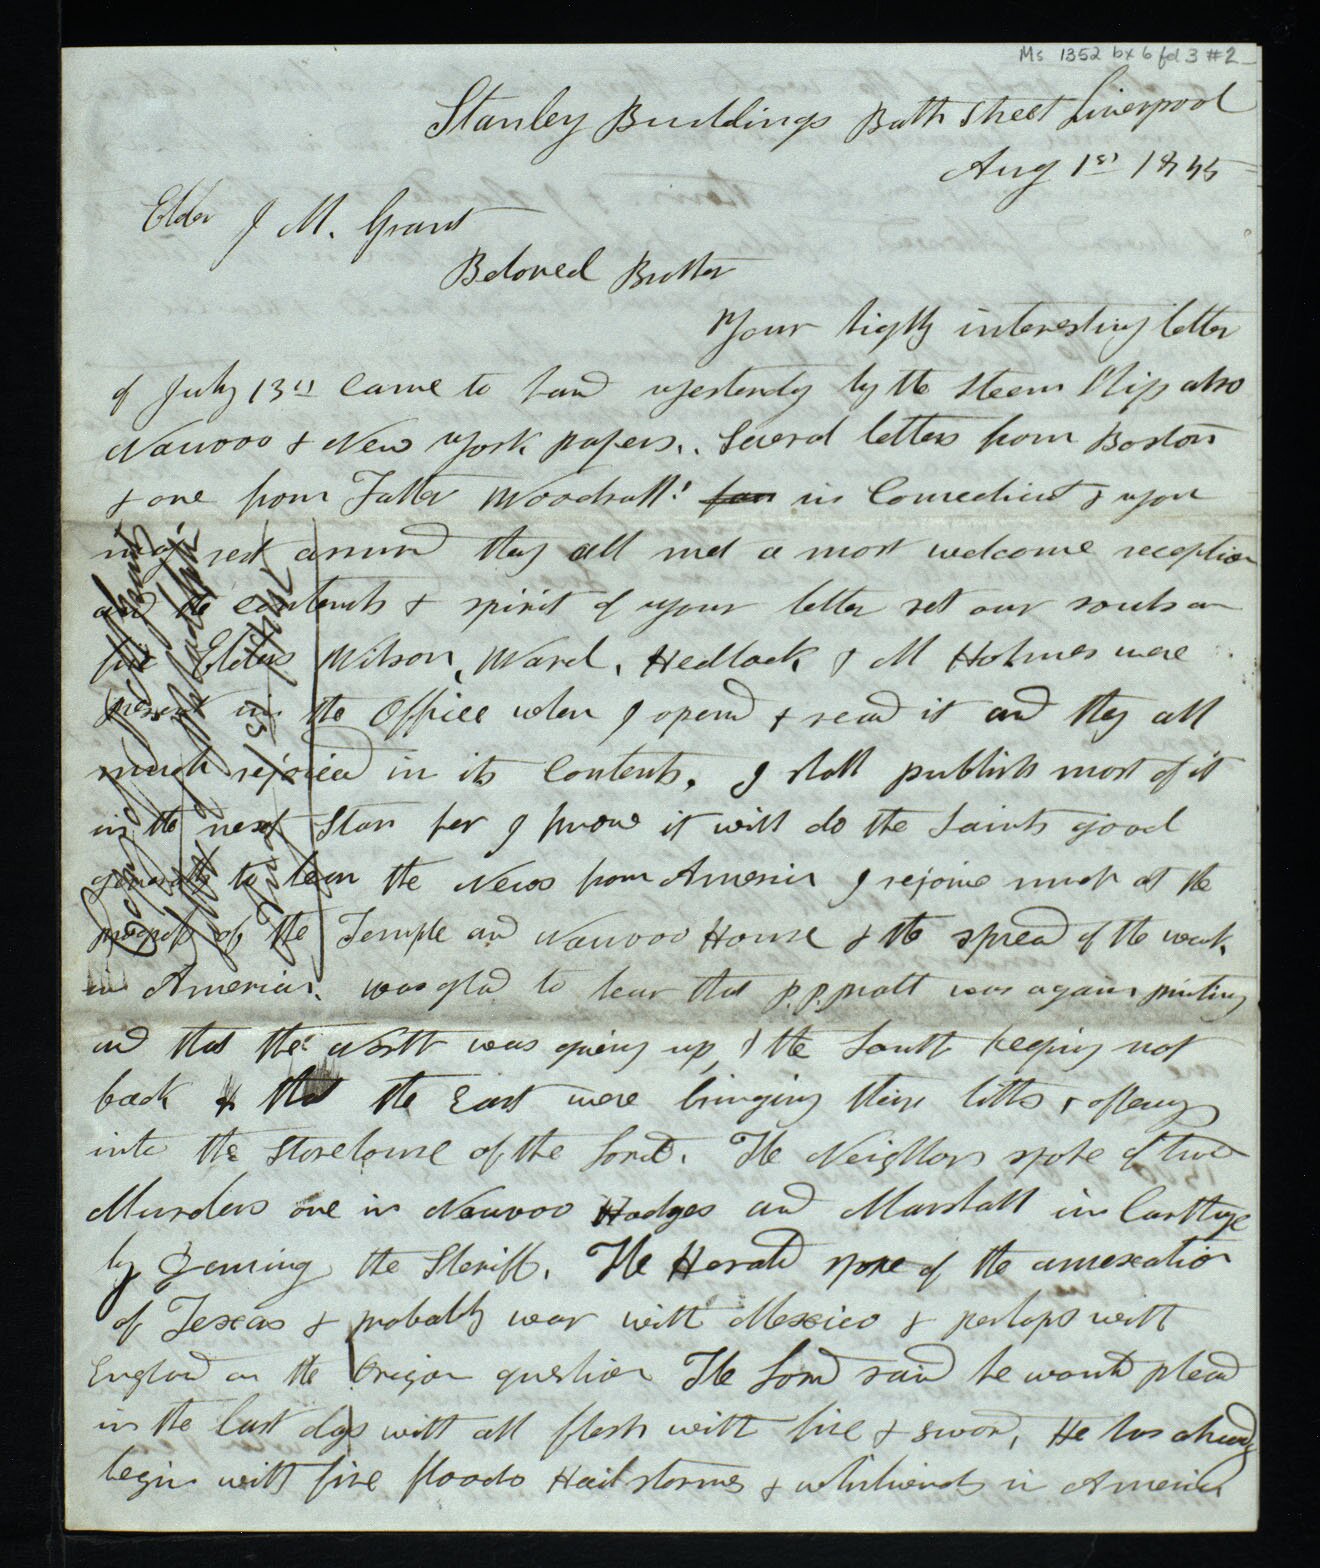 Ms 1352 bx 6 fd 3 #2
Stanley Buildings Bath Street Liverpool
Aug 1st 1845
Elder J M. Grant
Beloved Brother
Your highly interesting letter
of July 13th came to hand yesterday by the Steem Ship also
Nauvoo & New York papers. Several letters from Boston
& one from Father Woodruff! in Conecticut & you
may rest assured they all met a most welcome reception
and the contents & spirit of your letter set our souls on
fire Elders Wilson, Ward, Hedlock & M Holmes were
present in the Office when I opend & read it and they all
much rejoiced in its Contents. I shall publish most of it
in the next Star for I know it will do the Saints good
generally to hear the News from America I rejoice much at the
progress of the Temple and Nauvoo House & the spread of the work
in America. was glad to hear that P.P. Pratt was again printing
and that the North was giving up & the South keeping not
back & that the East were bringing their tiths & offerings
into the Storehouse of the Lord. The Neighbors spoke of two
Murders one in Nauvoo Hodges and Marshall in Carthage
by Deming the Sheriff. The Herald spoke of the annexation
of Texas & probably war with Mexico & perhaps with
England on the Origon question The Lord said he would plead
in the last days with all flesh with fire & sword, He has already
begin with fire floods Hail storms & whirlwinds in America
Copy of
letter of
Aug 1st 1845